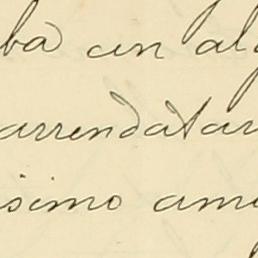 ba un al
arrendatar
simo am